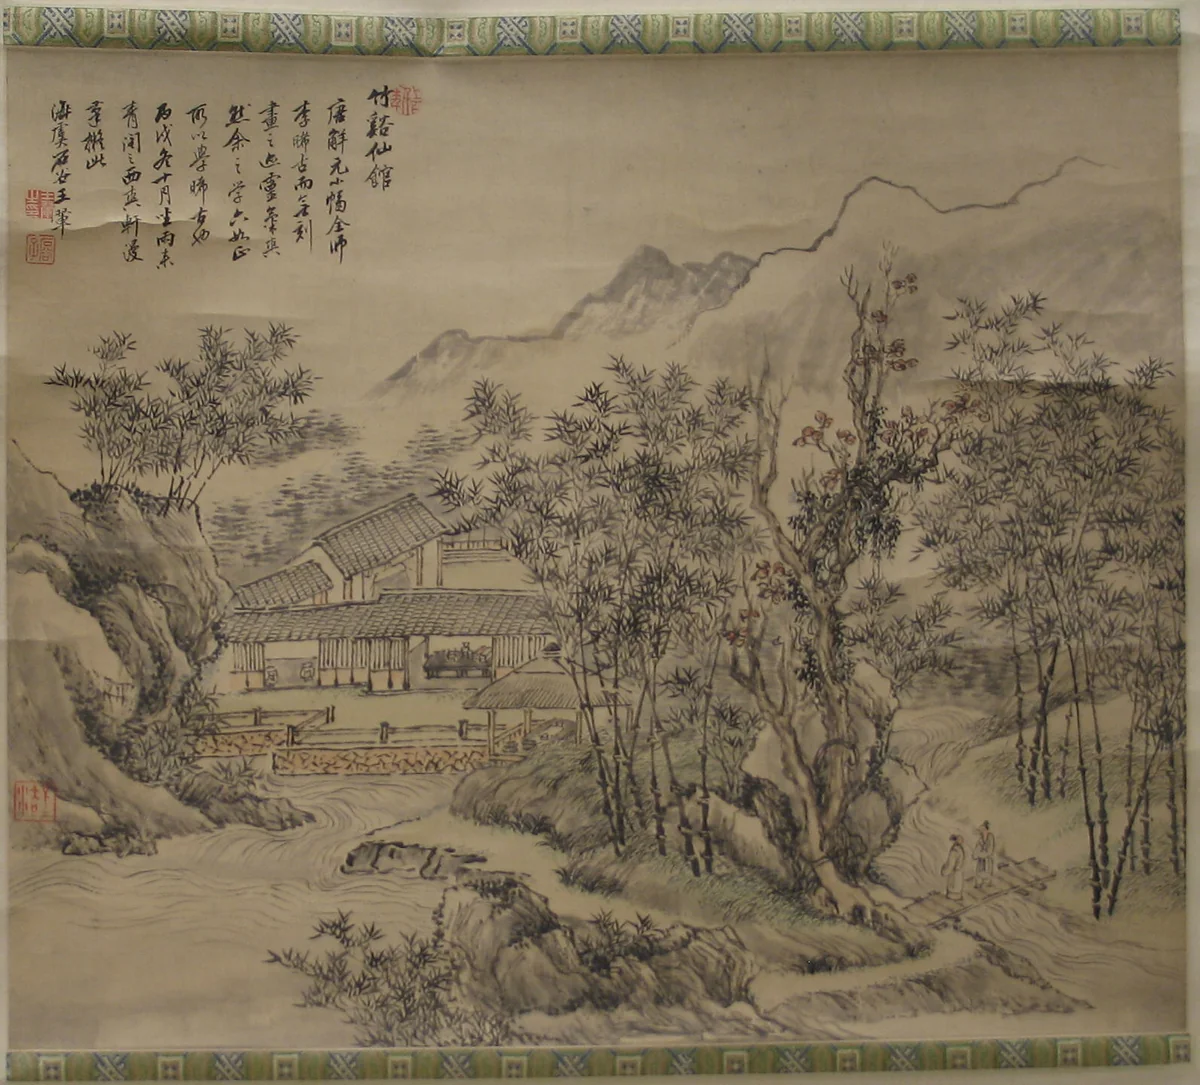 竹谿仙館
唐解元小幅全师
李晞古而无刻
畫之迹靈氣與
然余之学六如正
所以學晞古也
丙戌冬十月坐雨来
青閣之西爽軒漫
筆擬此
海虞石谷王翬